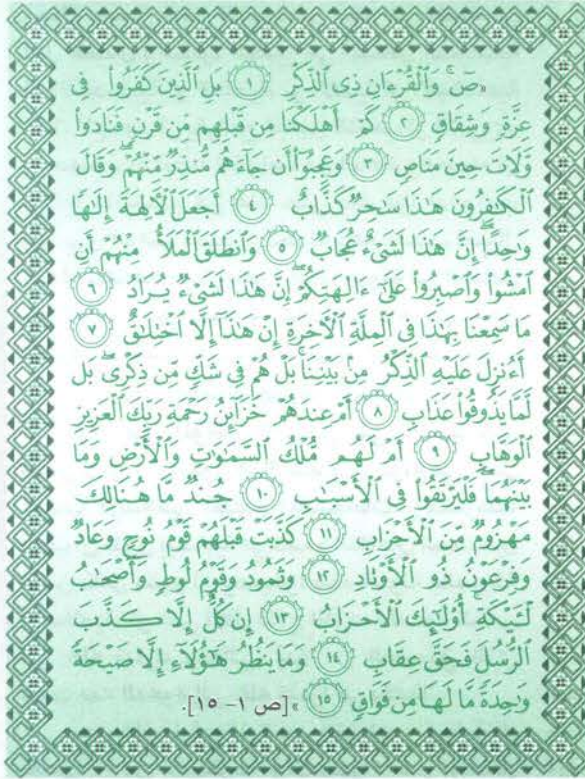 «صٓ ۚ وَٱلْقُرْءَانِ ذِى ٱلذِّكْرِ ﴿١﴾ بَلِ ٱلَّذِينَ كَفَرُوا۟ فِى
عِزَّةٍ وَشِقَاقٍ ﴿٢﴾ كَمْ أَهْلَكْنَا مِن قَبْلِهِم مِّن قَرْنٍ فَنَادَوا۟
وَّلَاتَ حِينَ مَنَاصٍ ﴿٣﴾ وَعَجِبُوٓا۟ أَن جَآءَهُم مُّنذِرٌ مِّنْهُمْ ۖ وَقَالَ
ٱلْكَٰفِرُونَ هَٰذَا سَٰحِرٌ كَذَّابٌ ﴿٤﴾ أَجَعَلَ ٱلْءَالِهَةَ إِلَٰهًا
وَٰحِدًا ۖ إِنَّ هَٰذَا لَشَىْءٌ عُجَابٌ ﴿٥﴾ وَٱنطَلَقَ ٱلْمَلَأُ مِنْهُمْ أَنِ
ٱمْشُوا۟ وَٱصْبِرُوا۟ عَلَىٰٓ ءَالِهَتِكُمْ ۖ إِنَّ هَٰذَا لَشَىْءٌ يُرَادُ ﴿٦﴾
مَا سَمِعْنَا بِهَٰذَا فِى ٱلْمِلَّةِ ٱلْءَاخِرَةِ إِنْ هَٰذَآ إِلَّا ٱخْتِلَٰقٌ ﴿٧﴾
أَءُنزِلَ عَلَيْهِ ٱلذِّكْرُ مِنۢ بَيْنِنَا ۚ بَلْ هُمْ فِى شَكٍّ مِّن ذِكْرِى ۖ بَل
لَّمَّا يَذُوقُوا۟ عَذَابِ ﴿٨﴾ أَمْ عِندَهُمْ خَزَآئِنُ رَحْمَةِ رَبِّكَ ٱلْعَزِيزِ
ٱلْوَهَّابِ ﴿٩﴾ أَمْ لَهُم مُّلْكُ ٱلسَّمَٰوَٰتِ وَٱلْأَرْضِ وَمَا
بَيْنَهُمَا ۖ فَلْيَرْتَقُوا۟ فِى ٱلْأَسْبَٰبِ ﴿١٠﴾ جُندٌ مَّا هُنَالِكَ
مَهْزُومٌ مِّنَ ٱلْأَحْزَابِ ﴿١١﴾ كَذَّبَتْ قَبْلَهُمْ قَوْمُ نُوحٍ وَعَادٌ
وَفِرْعَوْنُ ذُو ٱلْأَوْتَادِ ﴿١٢﴾ وَثَمُودُ وَقَوْمُ لُوطٍ وَأَصْحَٰبُ
لْـَٔيْكَةِ ۚ أُو۟لَٰٓئِكَ ٱلْأَحْزَابُ ﴿١٣﴾ إِن كُلٌّ إِلَّا كَذَّبَ
ٱلرُّسُلَ فَحَقَّ عِقَابِ ﴿١٤﴾ وَمَا يَنظُرُ هَٰٓؤُلَآءِ إِلَّا صَيْحَةً
وَٰحِدَةً مَّا لَهَا مِن فَوَاقٍ ﴿١٥﴾» [ص ١- ١٥].